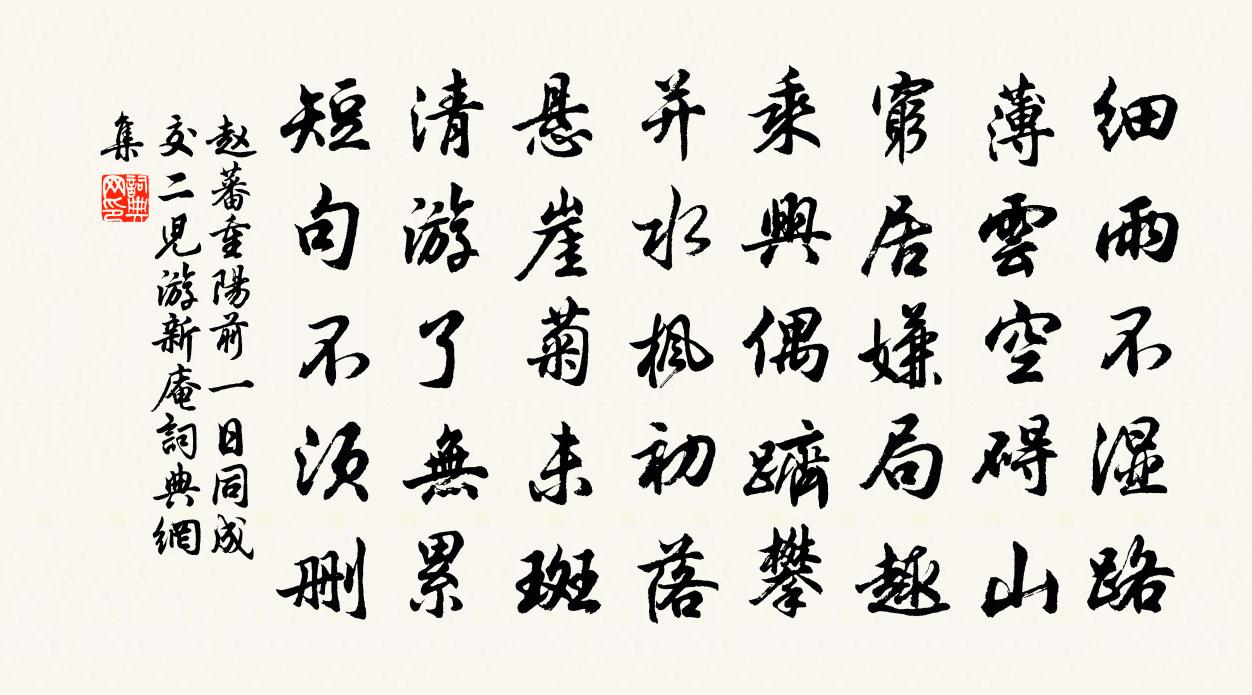 细雨不湿路
薄雲空碍山
窮居嫌局趣
乘興偶躋攀
并水枫初落
悬崖菊未斑
清游了無累
短句不须删
赵蕃重陽前一日同成
交二児游新庵詞典網
集
詞典網印